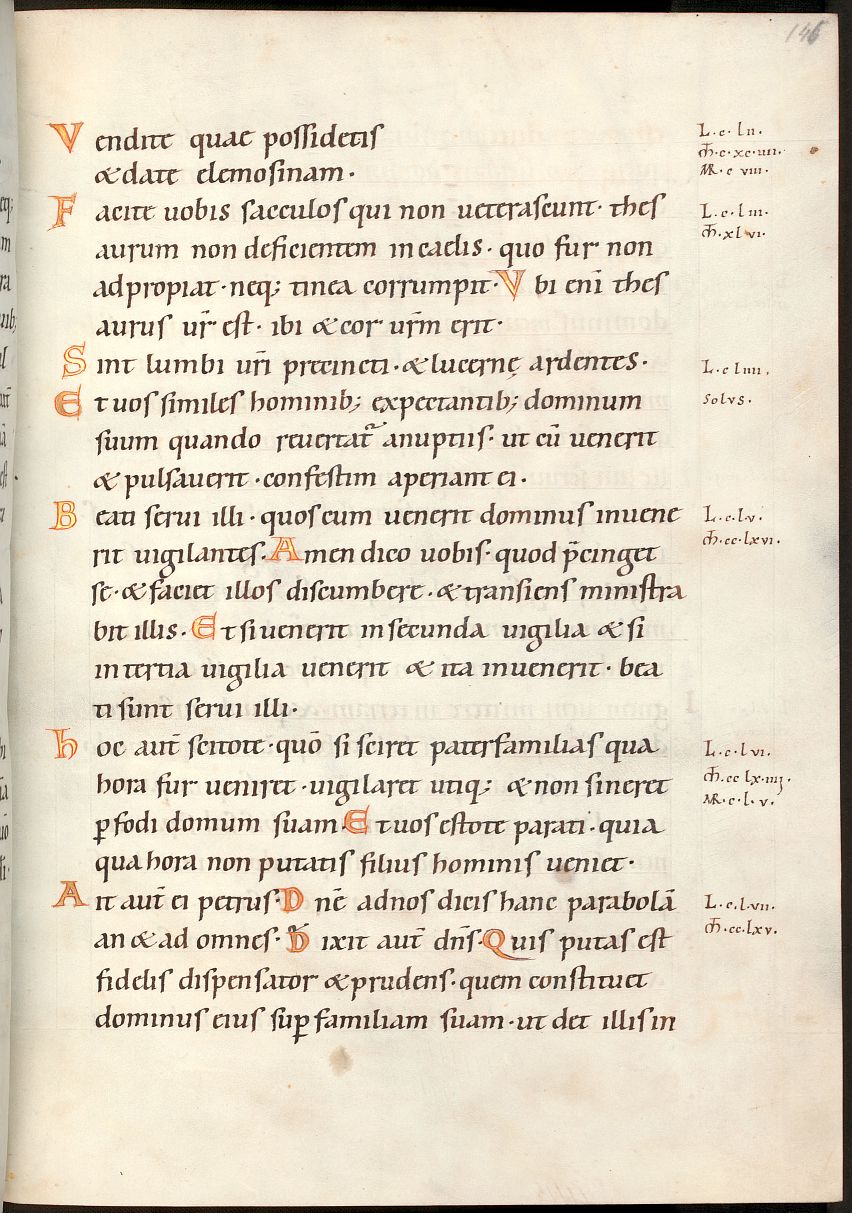 146
Vendite quae possidetis
& date elemosinam·
Facite uobis sacculos qui non ueterascunt· thes
aurum non deficientem in caelis· quo fur non
adpropiat· neq; tinea corrumpit· Vbi eni̅ thes
aurus ur̅ est· ibi & cor urm̅ erit·
Sint lumbi uri̅ precincti· & lucernę ardentes·
Et uos similes hominib; expectantib; dominum
suum quando reuertat᷒ a nuptiis· ut cu̅ uenerit
& pulsauerit· confestim aperiant ei·
Beati serui illi· quos cum uenerit dominus inuene
rit uigilantes· Amen dico uobis· quod p̅cinget
se· & faciet illos discumbere· & transiens ministra
bit illis· Et si uenerit in secunda uigilia & si
in tertia uigilia uenerit & ita inuenerit· bea
ti sunt serui illi·
hoc aut̅ scitote· quo̅ si sciret paterfamilias qua
hora fur ueniret· uigilaret utiq; & non sineret
ꝑfodi domum suam· Et uos estote parati· quia
qua hora non putatis filius hominis ueniet·
Ait aut̅ ei petrus· Dne̅ ad nos dicis hanc parabola̅
an & ad omnes· Dixit aut̅ dn̅s· Quis putas est
fidelis dispensator & prudens· quem constituet
dominus eius suꝑ familiam suam· ut det illis in
L·c·lii·
m̅·c·xc·iiii·
MR·c viii·
L·c·liii·
m̅·xlvi·
L·c liiii·
Solvs·
L·c·lv·
m̅·cc·lxvi·
L·c·lvi·
m̅·cc lx·iiij·
MR·c·l·v·
L·c·lvii·
m̅·cc·lxv·